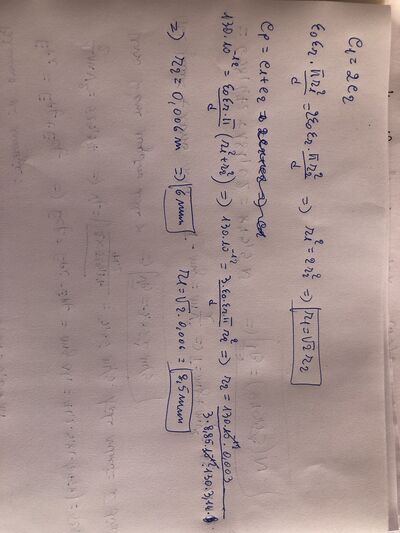 C₁ = 2C₂
ε₀εr · πr₁²/d = 2ε₀εr · πr₂²/d ⇒ r₁² = 2r₂² ⇒ r₁ = √2 r₂
Cp = C₁ + C₂
130·10⁻¹² = ε₀εrπ/d (r₁² + r₂²) ⇒ 130·10⁻¹² = 3·ε₀εrπ/d r₂² ⇒ r₂ = 130·10⁻¹² · 0,003 / 3·8,85·10⁻¹² · 130 · 3,14
⇒ r₂ = 0,006 m ⇒ 6 mm r₁ = √2 · 0,006 = 8,5 mm